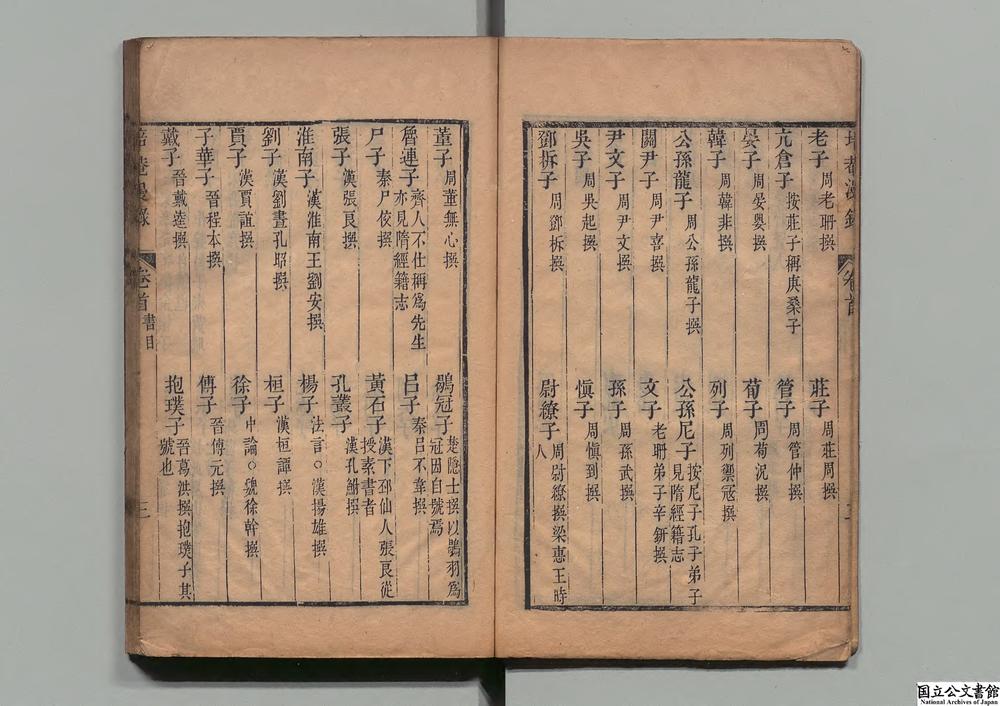 老子周老聃撰
莊子周莊周撰
亢倉子按莊子稱庚桑子
管子周管仲撰
晏子周晏嬰撰
荀子周荀況撰
韓子周韓非撰
列子周列禦寇撰
公孫龍子周公孫龍子撰
公孫尼子按尼子孔子弟子
見隋經籍志
關尹子周尹喜撰
文子老聃弟子辛鈃撰
尹文子周尹文撰
孫子周孫武撰
吳子周吳起撰
愼子周愼到撰
鄧析子周鄧析撰
尉繚子周尉繚撰梁惠王時
人
董子周董無心撰
鶡冠子楚隱士撰以鶡羽爲
冠因自號焉
魯連子齊人不仕稱爲先生
亦見隋經籍志
呂子秦呂不韋撰
尸子秦尸佼撰
黃石子漢下邳仙人張良從
授素書者
張子漢張良撰
孔叢子漢孔鮒撰
淮南子漢淮南王劉安撰
楊子法言○漢揚雄撰
劉子漢劉晝孔昭撰
桓子漢桓譚撰
賈子漢賈誼撰
徐子中論○魏徐幹撰
子華子晉程本撰
傅子晉傅元撰
戴子晉戴逵撰
抱璞子晉葛洪撰抱璞子其
號也
卷首 書目
三
国立公文書館
National Archives of Japan